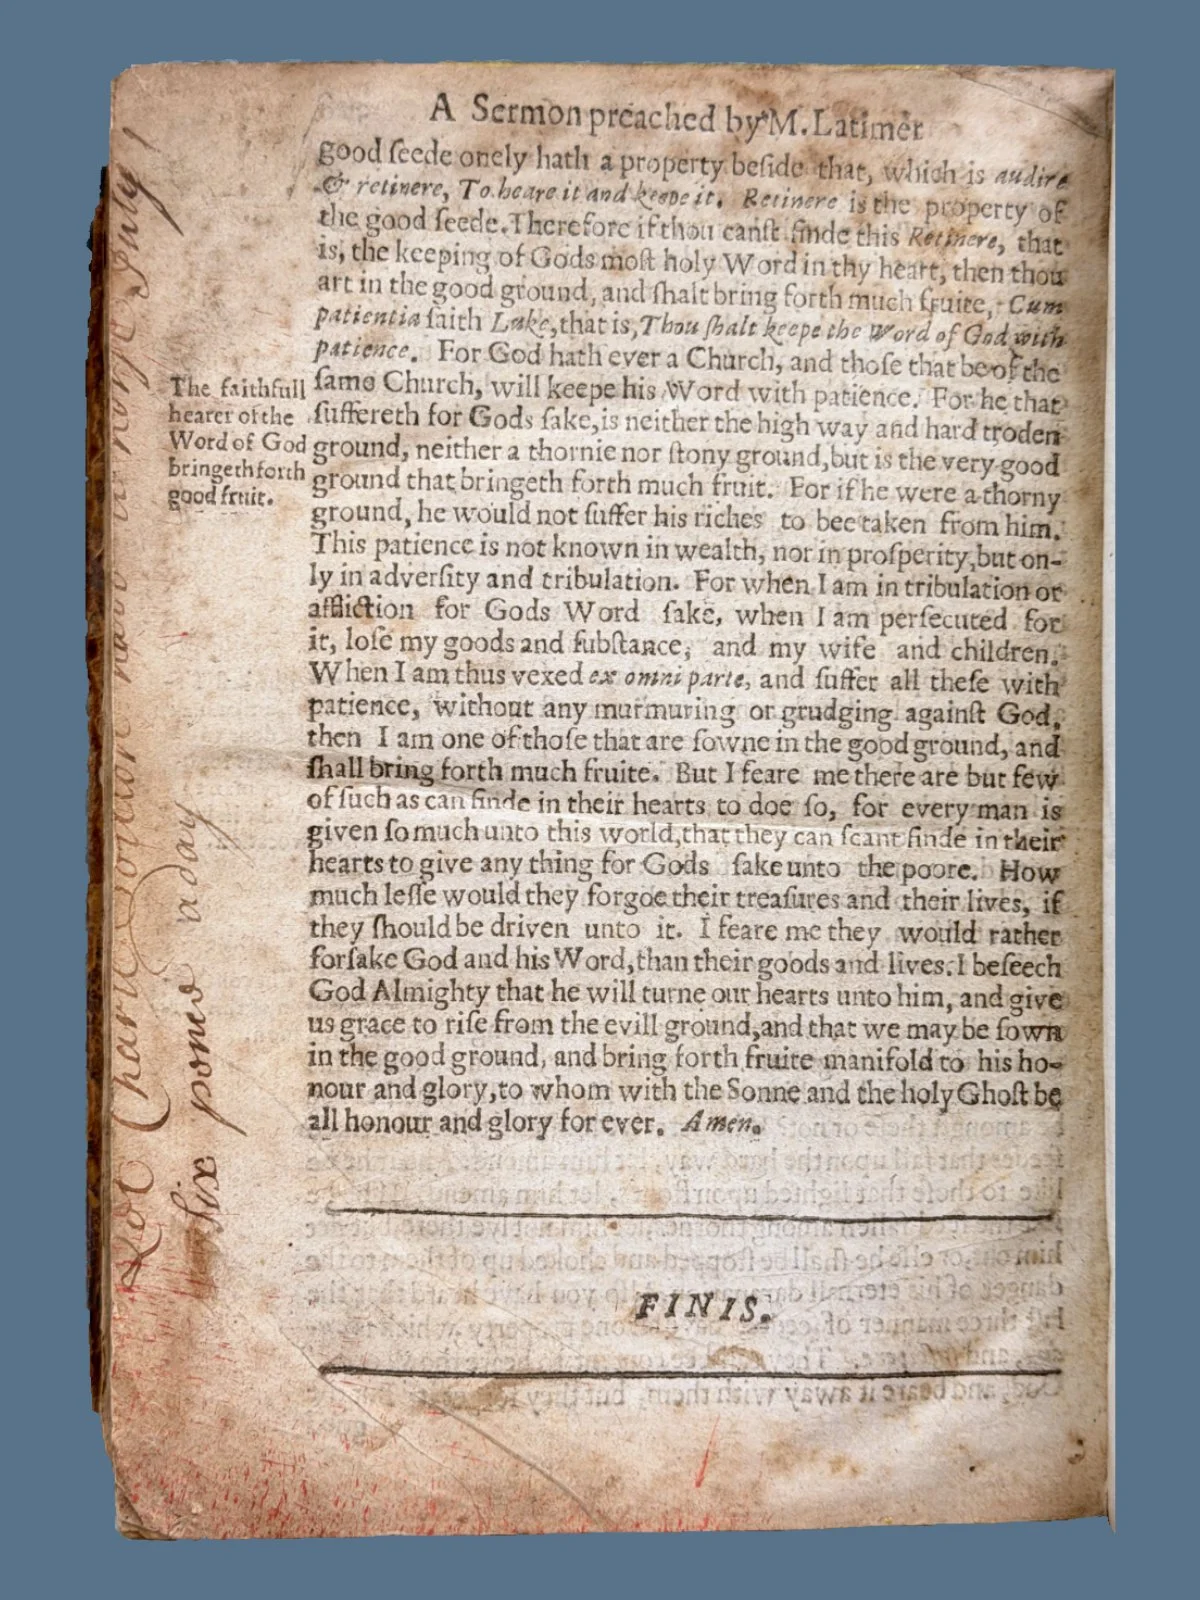 A Sermon preached by M. Latimer
good ſeede onely hath a property beſide that, which is audire
& retinere, To heare it and keepe it. Retinere is the property of
the good ſeede. Therefore if thou canſt finde this Retinere, that
is, the keeping of Gods moſt holy Word in thy heart, then thou
art in the good ground, and ſhalt bring forth much fruite, Cum
patientia ſaith Luke, that is, Thou ſhalt keepe the Word of God with
patience. For God hath ever a Church, and thoſe that be of the
ſame Church, will keepe his Word with patience. For he that
ſuffereth for Gods ſake, is neither the high way and hard troden
ground, neither a thornie nor ſtony ground, but is the very good
ground that bringeth forth much fruit. For if he were a thorny
ground, he would not ſuffer his riches to bee taken from him.
This patience is not known in wealth, nor in proſperity, but on-
ly in adverſity and tribulation. For when I am in tribulation or
affliction for Gods Word ſake, when I am perſecuted for
it, loſe my goods and ſubſtance, and my wife and children.
When I am thus vexed ex omni parte, and ſuffer all theſe with
patience, without any murmuring or grudging againſt God,
then I am one of thoſe that are ſowne in the good ground, and
ſhall bring forth much fruite. But I feare me there are but few
of ſuch as can finde in their hearts to doe ſo, for every man is
given ſo much unto this world, that they can ſcant finde in their
hearts to give any thing for Gods ſake unto the poore. How
much leſſe would they forgoe their treaſures and their lives, if
they ſhould be driven unto it. I feare me they would rather
forſake God and his Word, than their goods and lives. I beſeech
God Almighty that he will turne our hearts unto him, and give
us grace to riſe from the evill ground, and that we may be ſown
in the good ground, and bring forth fruite manifold to his ho-
nour and glory, to whom with the Sonne and the holy Ghoſt be
all honour and glory for ever. Amen.
FINIS.
The faithfull
hearer of the
Word of God
bringeth forth
good fruit.
Charls have horſe
Six a day